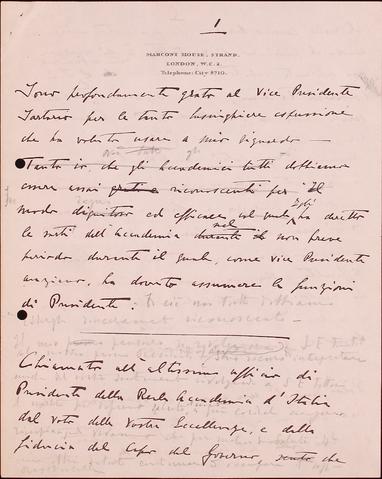 1
MARCONI HOUSE, STRAND,
LONDON, W.C.2.
Telephone: City 8710.
Sono profondamente grato al Vice Presidente
per le tanto lusinghiere espressione
che ha voluto usare a mio riguardo –
Tanto io, che gli accademici tutti dobbiamo
essere assai grati e riconoscenti per il
modo dignitoso ed efficace col quale egli ha diretto
le sorti dell'Accademia durante il nel non breve
periodo durante il quale, come Vice Presidente
anziano, ha dovuto assumere le funzioni
di Presidente.
Chiamato all'altissimo ufficio di
Presidente della Reale Accademia d'Italia
dal voto delle Vostre Eccellenze, e della
fiducia del Capo del Governo, sento che